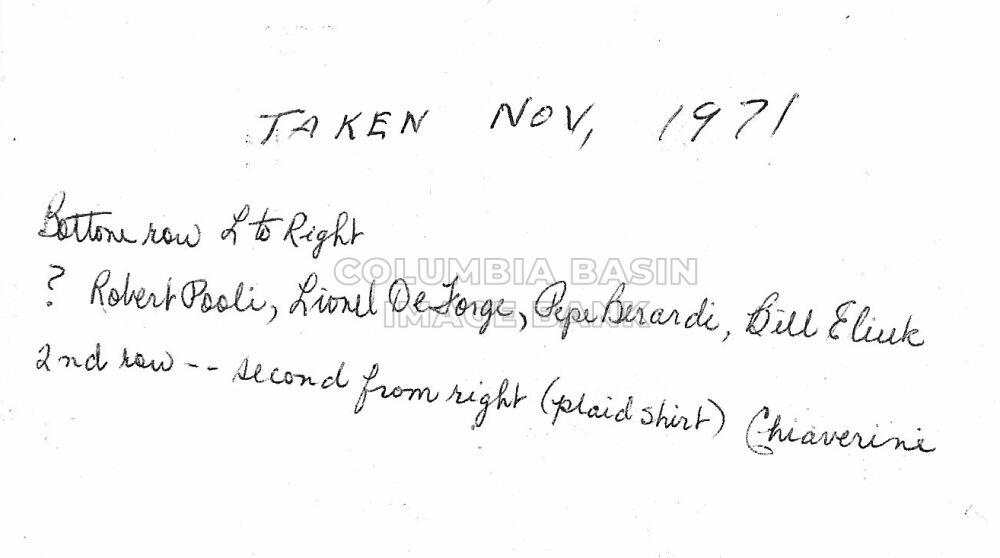 TAKEN NOV, 1971
Bottom row L to Right
? Robert Paoli, Lionel DeForge, Pepe Berardi, Bill Eliuk
2nd row -- second from right (plaid shirt) Chiaverini
COLUMBIA BASIN
IMAGE BANK